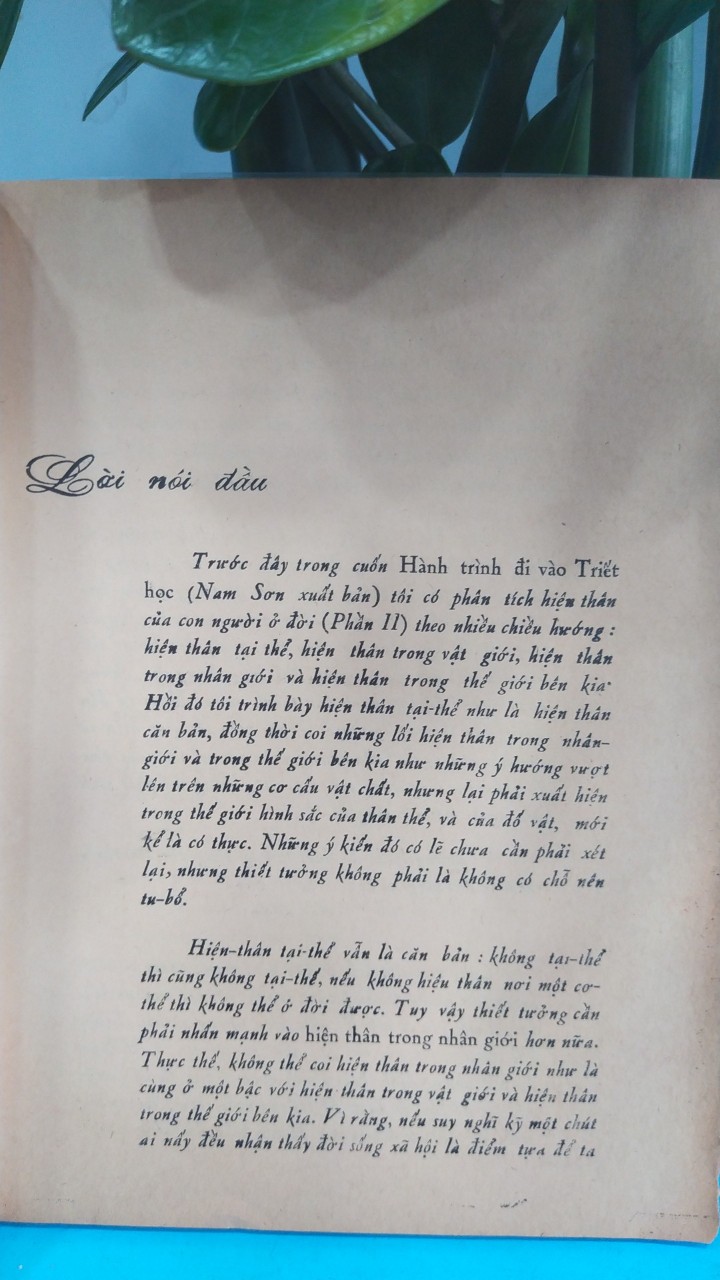 Lời nói đầu
Trước đây trong cuốn Hành trình đi vào Triết
học (Nam Sơn xuất bản) tôi có phân tích hiện thân
của con người ở đời (Phần II) theo nhiều chiều hướng :
hiện thân tại thể, hiện thân trong vật giới, hiện thân
trong nhân giới và hiện thân trong thế giới bên kia.
Hồi đó tôi trình bày hiện thân tại-thể như là hiện thân
căn bản, đồng thời coi những lối hiện thân trong nhân-
giới và trong thế giới bên kia như những ý hướng vượt
lên trên những cơ cấu vật chất, nhưng lại phải xuất hiện
trong thế giới hình sắc của thân thể, và của đồ vật, mới
kể là có thực. Những ý kiến đó có lẽ chưa cần phải xét
lại, nhưng thiết tưởng không phải là không có chỗ nên
tu-bổ.
Hiện-thân tại-thể vẫn là căn bản : không tại-thể
thì cũng không tại-thế, nếu không hiệu thân nơi một cơ-
thể thì không thể ở đời được. Tuy vậy thiết tưởng cần
phải nhấn mạnh vào hiện thân trong nhân giới hơn nữa.
Thực thế, không thể coi hiện thân trong nhân giới như là
cùng ở một bậc với hiện thân trong vật giới và hiện thân
trong thế giới bên kia. Vì rằng, nếu suy nghĩ kỹ một chút
ai nấy đều nhận thấy đời sống xã hội là điểm tựa để ta